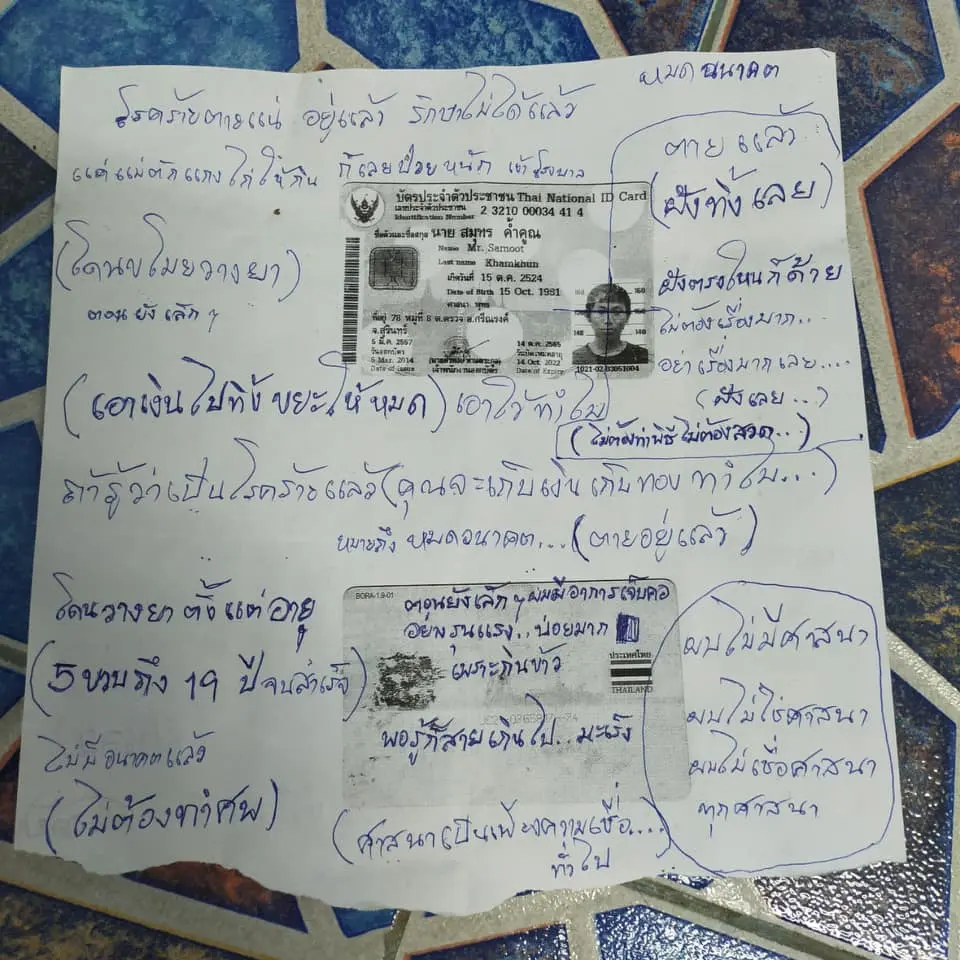 หมดอนาคต
โรคร้ายตายแน่ อยู่แล้ว รักษาไม่ได้แล้ว
แค่แม่ตักแกงไก่ให้กิน ก็เลยป่วยหนัก
ตายแล้ว
(ฝังทิ้งเลย)
บัตรประจำตัวประชาชน Thai National ID Card
เลขประจำตัวประชาชน
Identification Number 2 3210 00034 41 4
ชื่อตัวและชื่อสกุล นาย สมุทร ค้ำคูณ
Name Mr. Samoot
Last name Khamkhun
เกิดวันที่ 15 ต.ค. 2524
Date of Birth 15 Oct. 1981
ศาสนา พุทธ
ที่อยู่ 78 หมู่ที่ 8 ต.ตรวจ อ.ศรีณรงค์
จ.สุรินทร์
5 มี.ค. 2557
วันออกบัตร
5 Mar. 2014
Date of Issue
เจ้าพนักงานออกบัตร
14 ต.ค. 2565
วันบัตรหมดอายุ
14 Oct. 2022
Date of Expiry
160 160
150
140 140
1021-02-03051004
(โดนขโมยวางยา)
ตอนยังเล็กๆ
ฝังตรงไหนก็ด้าย
ไม่ต้องเรื่องมาก..
อย่าเรื่องมากเลย....
(ฝังเลย...)
(เอาเงินไปทิ้งขยะให้หมด) เอาไว้ทำไม
(ไม่ต้องทำพิธีไม่ต้องสวด...)
ถ้ารู้ว่าเป็นโรคร้ายแล้ว (คุณจะเก็บเงินเก็บทองทำไม...)
หมายถึง หมดอนาคต... (ตายอยู่แล้ว)
โดนวางยา ตั้งแต่อายุ
(5 ขวบถึง 19 ปีจนสำเร็จ)
ไม่มีอนาคตแล้ว
(ไม่ต้องทำศพ)
BORA-1.9-01
ตอนยังเล็กๆ ผมมีอาการเจ็บคอ
อย่างรุนแรง..บ่อยมาก
เพราะกินข้าว
ประเทศไทย
THAILAND
พอรู้ก็สายเกินไป..มะเร็ง
(ศาสนาเป็นเพียงความเชื่อ...)
ทั่วไป
ผมไม่มีศาสนา
ผมไม่ใช่ศาสนา
ผมไม่เชื่อศาสนา
ทุกศาสนา